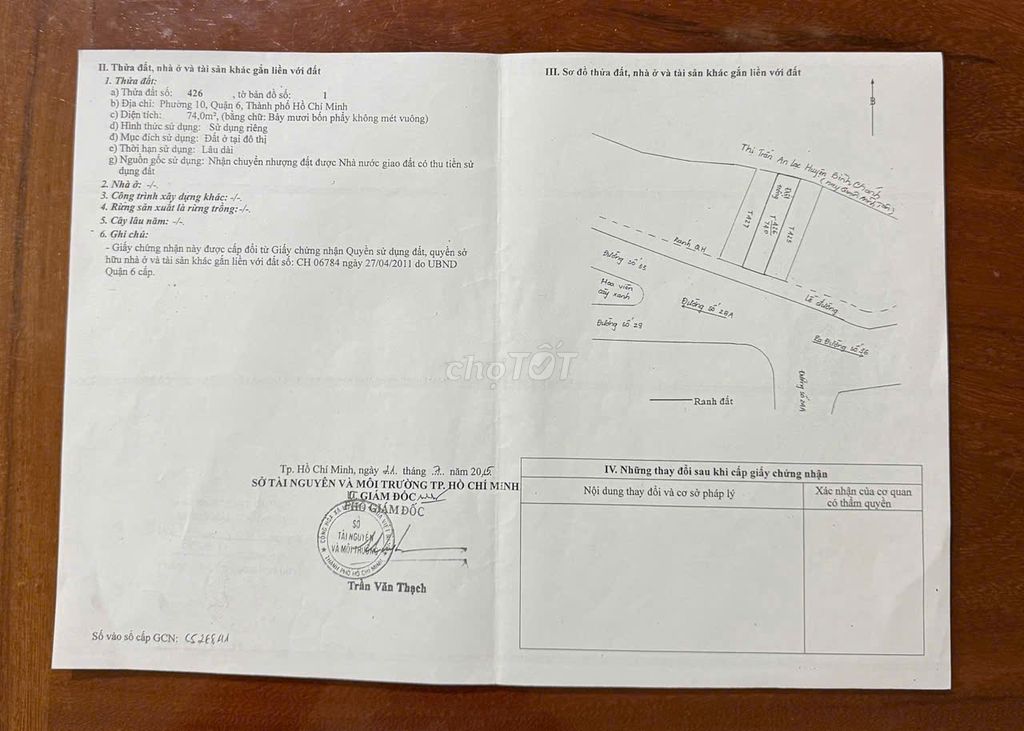 II. Thửa đất, nhà ở và tài sản khác gắn liền với đất
1. Thửa đất:
a) Thửa đất số: 426 , tờ bản đồ số: 1
b) Địa chỉ: Phường 10, Quận 6, Thành phố Hồ Chí Minh
c) Diện tích: 74,0m², (bằng chữ: Bảy mươi bốn phẩy không mét vuông)
d) Hình thức sử dụng: Sử dụng riêng
đ) Mục đích sử dụng: Đất ở tại đô thị
e) Thời hạn sử dụng: Lâu dài
g) Nguồn gốc sử dụng: Nhận chuyển nhượng đất được Nhà nước giao đất có thu tiền sử
dụng đất
2. Nhà ở: -/-.
3. Công trình xây dựng khác: -/-.
4. Rừng sản xuất là rừng trồng:-/-.
5. Cây lâu năm: -/-.
6. Ghi chú:
- Giấy chứng nhận này được cấp đổi từ Giấy chứng nhận Quyền sử dụng đất, quyền sở
hữu nhà ở và tài sản khác gắn liền với đất số: CH 06784 ngày 27/04/2011 do UBND
Quận 6 cấp.
Tp. Hồ Chí Minh, ngày tháng năm 2015
SỞ TÀI NGUYÊN VÀ MÔI TRƯỜNG TP. HỒ CHÍ MINH
KT. GIÁM ĐỐC
PHÓ GIÁM ĐỐC
SỞ
TÀI NGUYÊN
VÀ MÔI TRƯỜNG
THÀNH PHỐ HỒ CHÍ MINH
Trần Văn Thạch
Số vào sổ cấp GCN:
III. Sơ đồ thửa đất, nhà ở và tài sản khác gắn liền với đất
B
Thị Trấn An Lạc Huyện Bình Chánh
(nay Quận Bình Tân)
T.427
Đất
trống
T.426
74.0
T.425
Ranh QH
Lề đường
Đường số
Hoa viên
cây xanh
Đường số 28A
Đường số 29
Ra Đường số 26
Đường số
Ranh đất
IV. Những thay đổi sau khi cấp giấy chứng nhận
Nội dung thay đổi và cơ sở pháp lý
Xác nhận của cơ quan
có thẩm quyền
chợTỐT